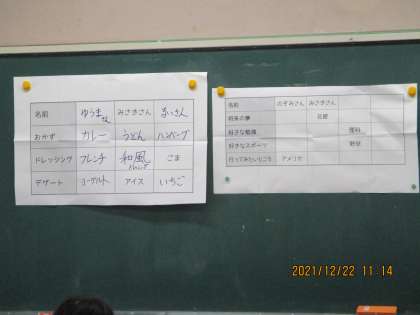 名前 ゆうま みさきさん
おかず カレー うどん ハンバーグ
ドレッシング フレンチ 和風 ごま
デザート ヨーグルト アイス いちご
名前 のぞみさん みさきさん
将来の夢
好きな勉強 理科
好きなスポーツ 野球
行ってみたいところ アメリカ
2021/12/22 11:14